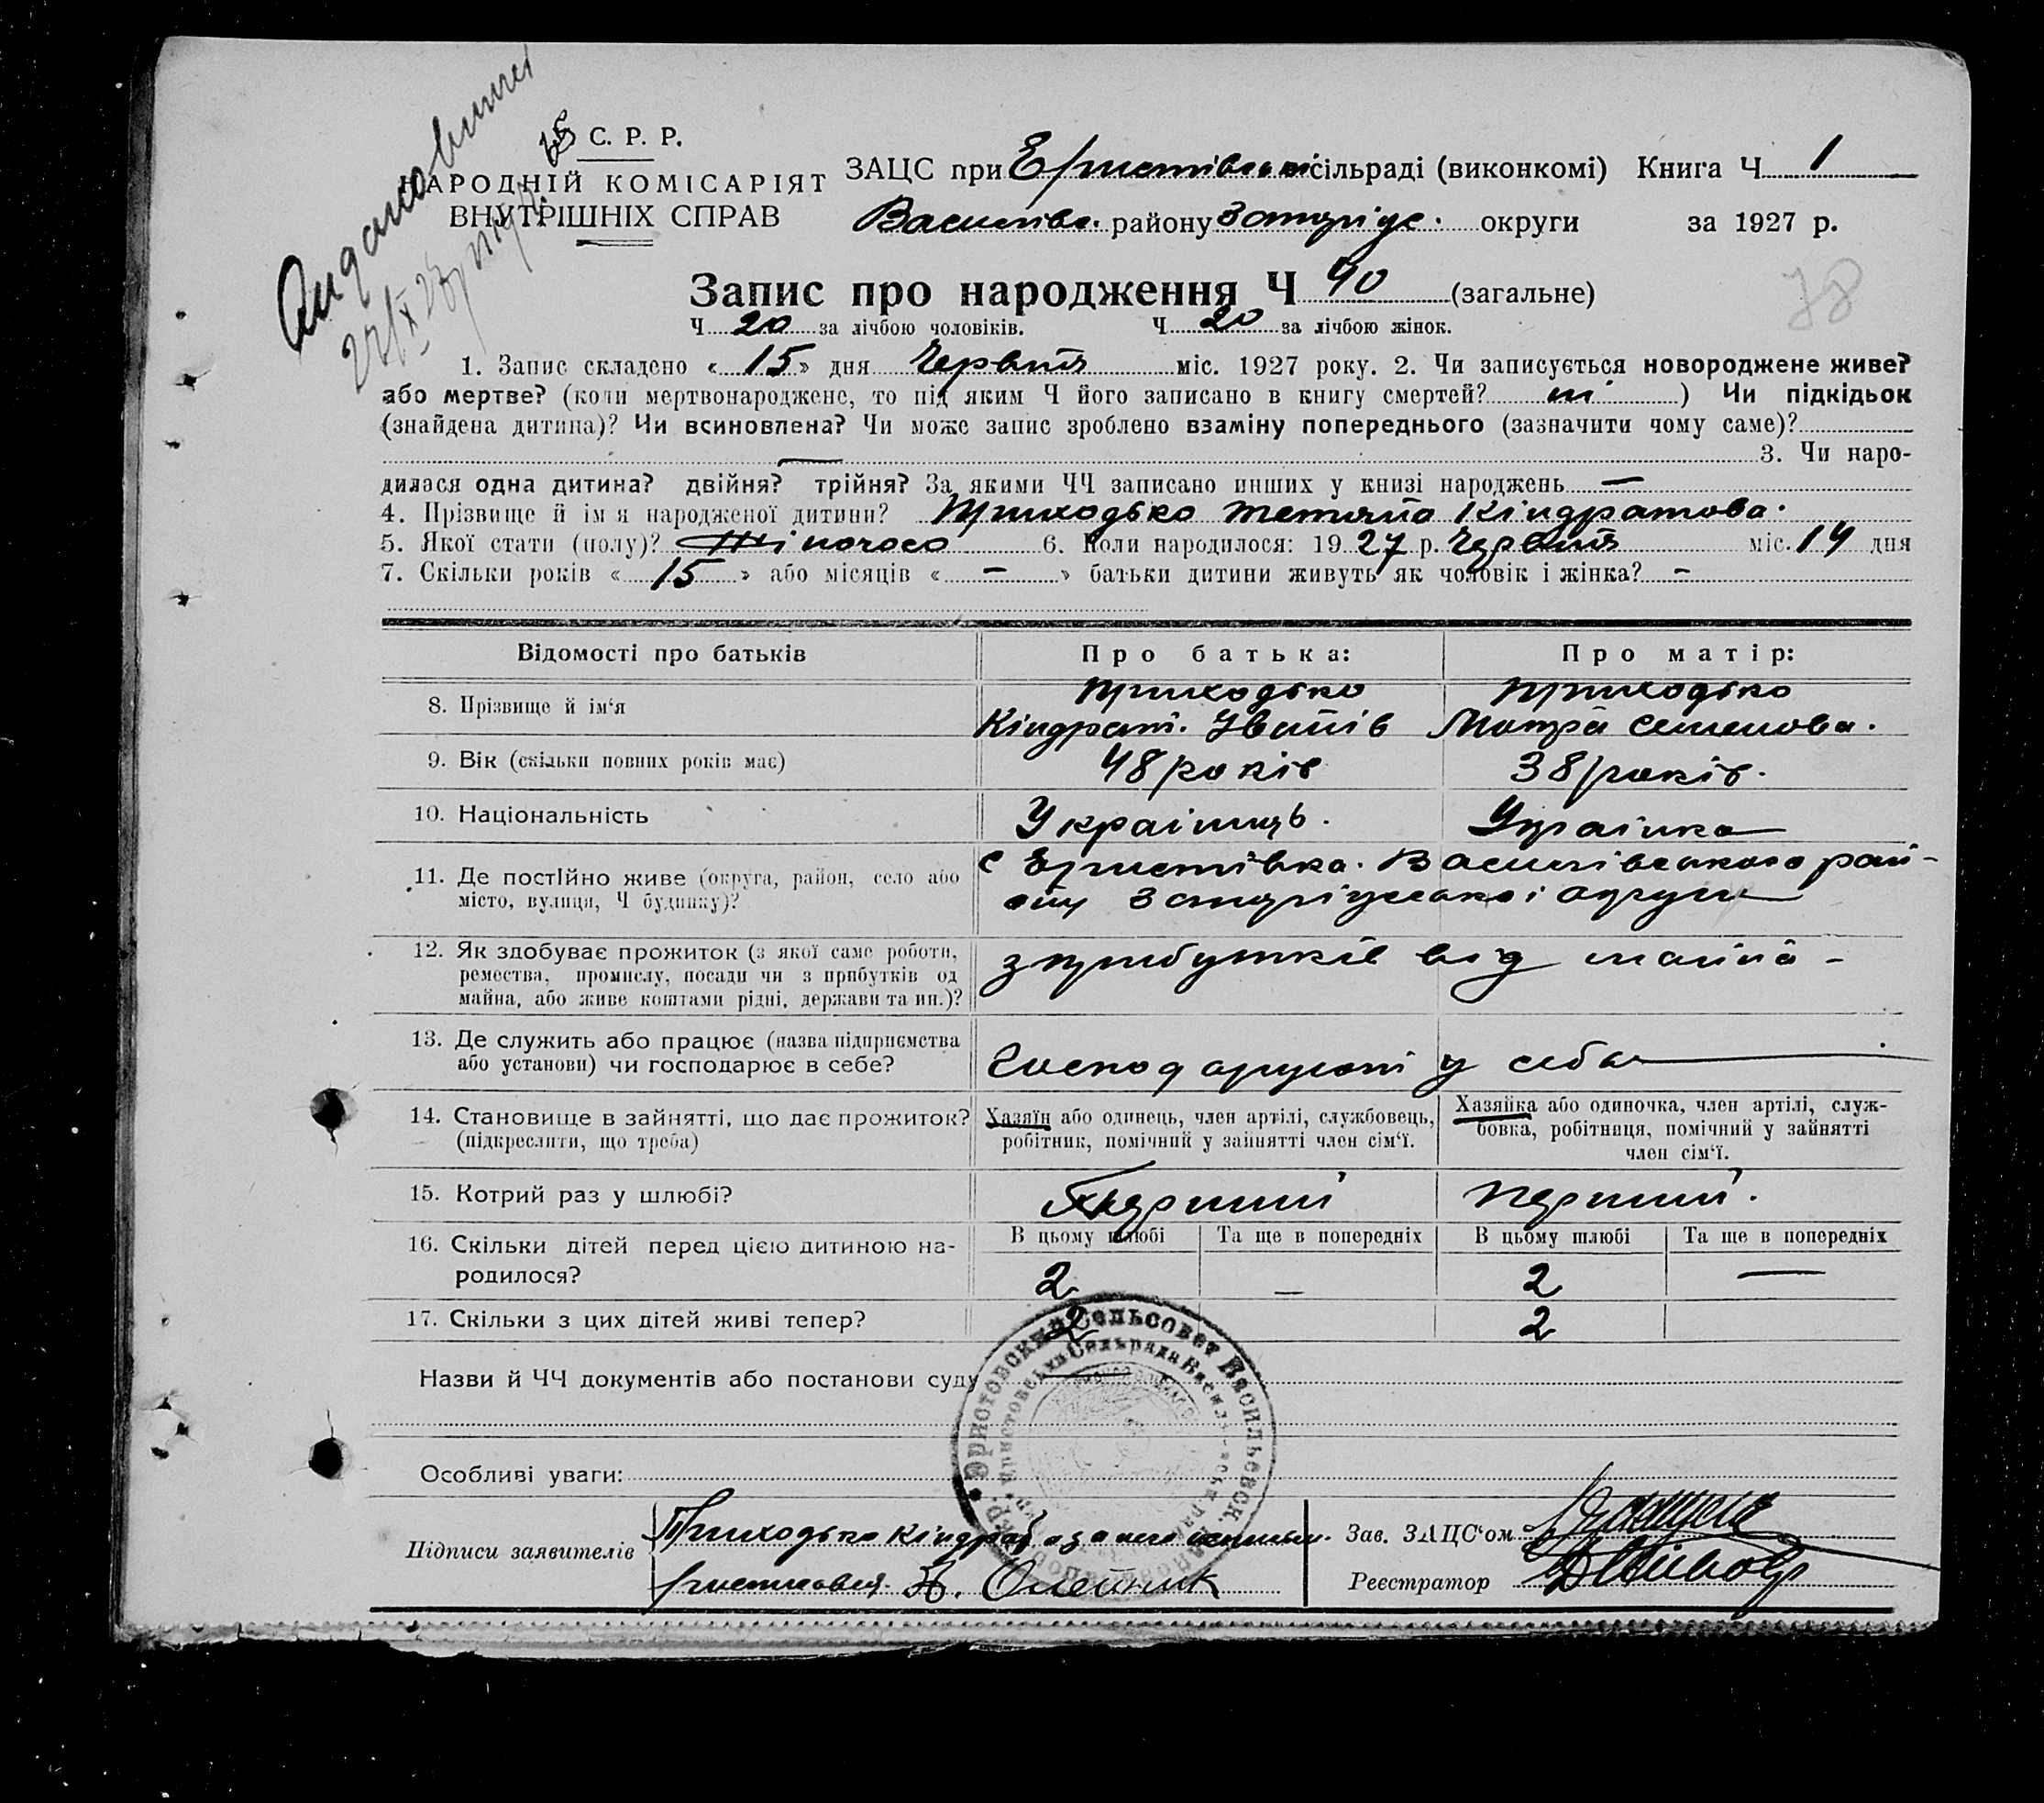 С. Р. Р.
НАРОДНІЙ КОМІСАРІЯТ
ВНУТРІШНІХ СПРАВ
ЗАЦС при Еристівській сільраді (виконкомі) Книга Ч 1
Василів. району Запоріж. округи за 1927 р.
Запис про народження Ч 40 (загальне)
78
Ч 20 за лічбою чоловіків. Ч 20 за лічбою жінок.
1. Запис складено « 15 » дня Червня міс. 1927 року. 2. Чи записується новороджене живе?
або мертве? (коли мертвонароджене, то під яким Ч його записано в книгу смертей? ні ) Чи підкідьок
(знайдена дитина)? Чи всиновлена? Чи може запис зроблено взаміну попереднього (зазначити чому саме)?
— 3. Чи наро-
дилася одна дитина? двійня? трійня? За якими ЧЧ записано инших у книзі народжень —
4. Прізвище й ім я народженої дитини? Приходько Тетяна Кіндратова.
5. Якої стати (полу)? Жіночого 6. Коли народилося: 19 27 р. Червня міс. 14 дня
7. Скільки років « 15 » або місяців « — » батьки дитини живуть як чоловік і жінка? —
Відомості про батьків Про батька: Про матір:
8. Прізвище й ім‘я Приходько Кіндрат. Іванів Приходько Мотря Семенова.
9. Вік (скільки повних років має) 48 років 38 років.
10. Національність Українець. Українка
11. Де постійно живе (округа, район, село або с Еристівка. Василівського рай-
місто, вулиця, Ч будинку)? ону Запоріжської округи
12. Як здобуває прожиток (з якої саме роботи, з прибутків від майна -
ремества, промислу, посади чи з прибутків од
майна, або живе коштами рідні, держави та ин.)?
13. Де служить або працює (назва підприємства
або установи) чи господарює в себе? Господарюють у себе
14. Становище в зайнятті, що дає прожиток? Хазяїн або одинець, член артілі, службовець, Хазяйка або одиночка, член артілі, служ-
(підкреслити, що треба) робітник, помічний у зайнятті член сім‘ї. бовка, робітниця, помічний у зайнятті
член сім‘ї.
15. Котрий раз у шлюбі? Перший Перший.
16. Скільки дітей перед цією дитиною на- В цьому шлюбі Та ще в попередніх В цьому шлюбі Та ще в попередніх
родилося? 2 — 2 —
17. Скільки з цих дітей живі тепер? 2 2
Назви й ЧЧ документів або постанови суду —
Особливі уваги:
Підписи заявителів Приходько Кіндрат а за него Зав. ЗАЦС‘ом
росписався. Олейник Реєстратор